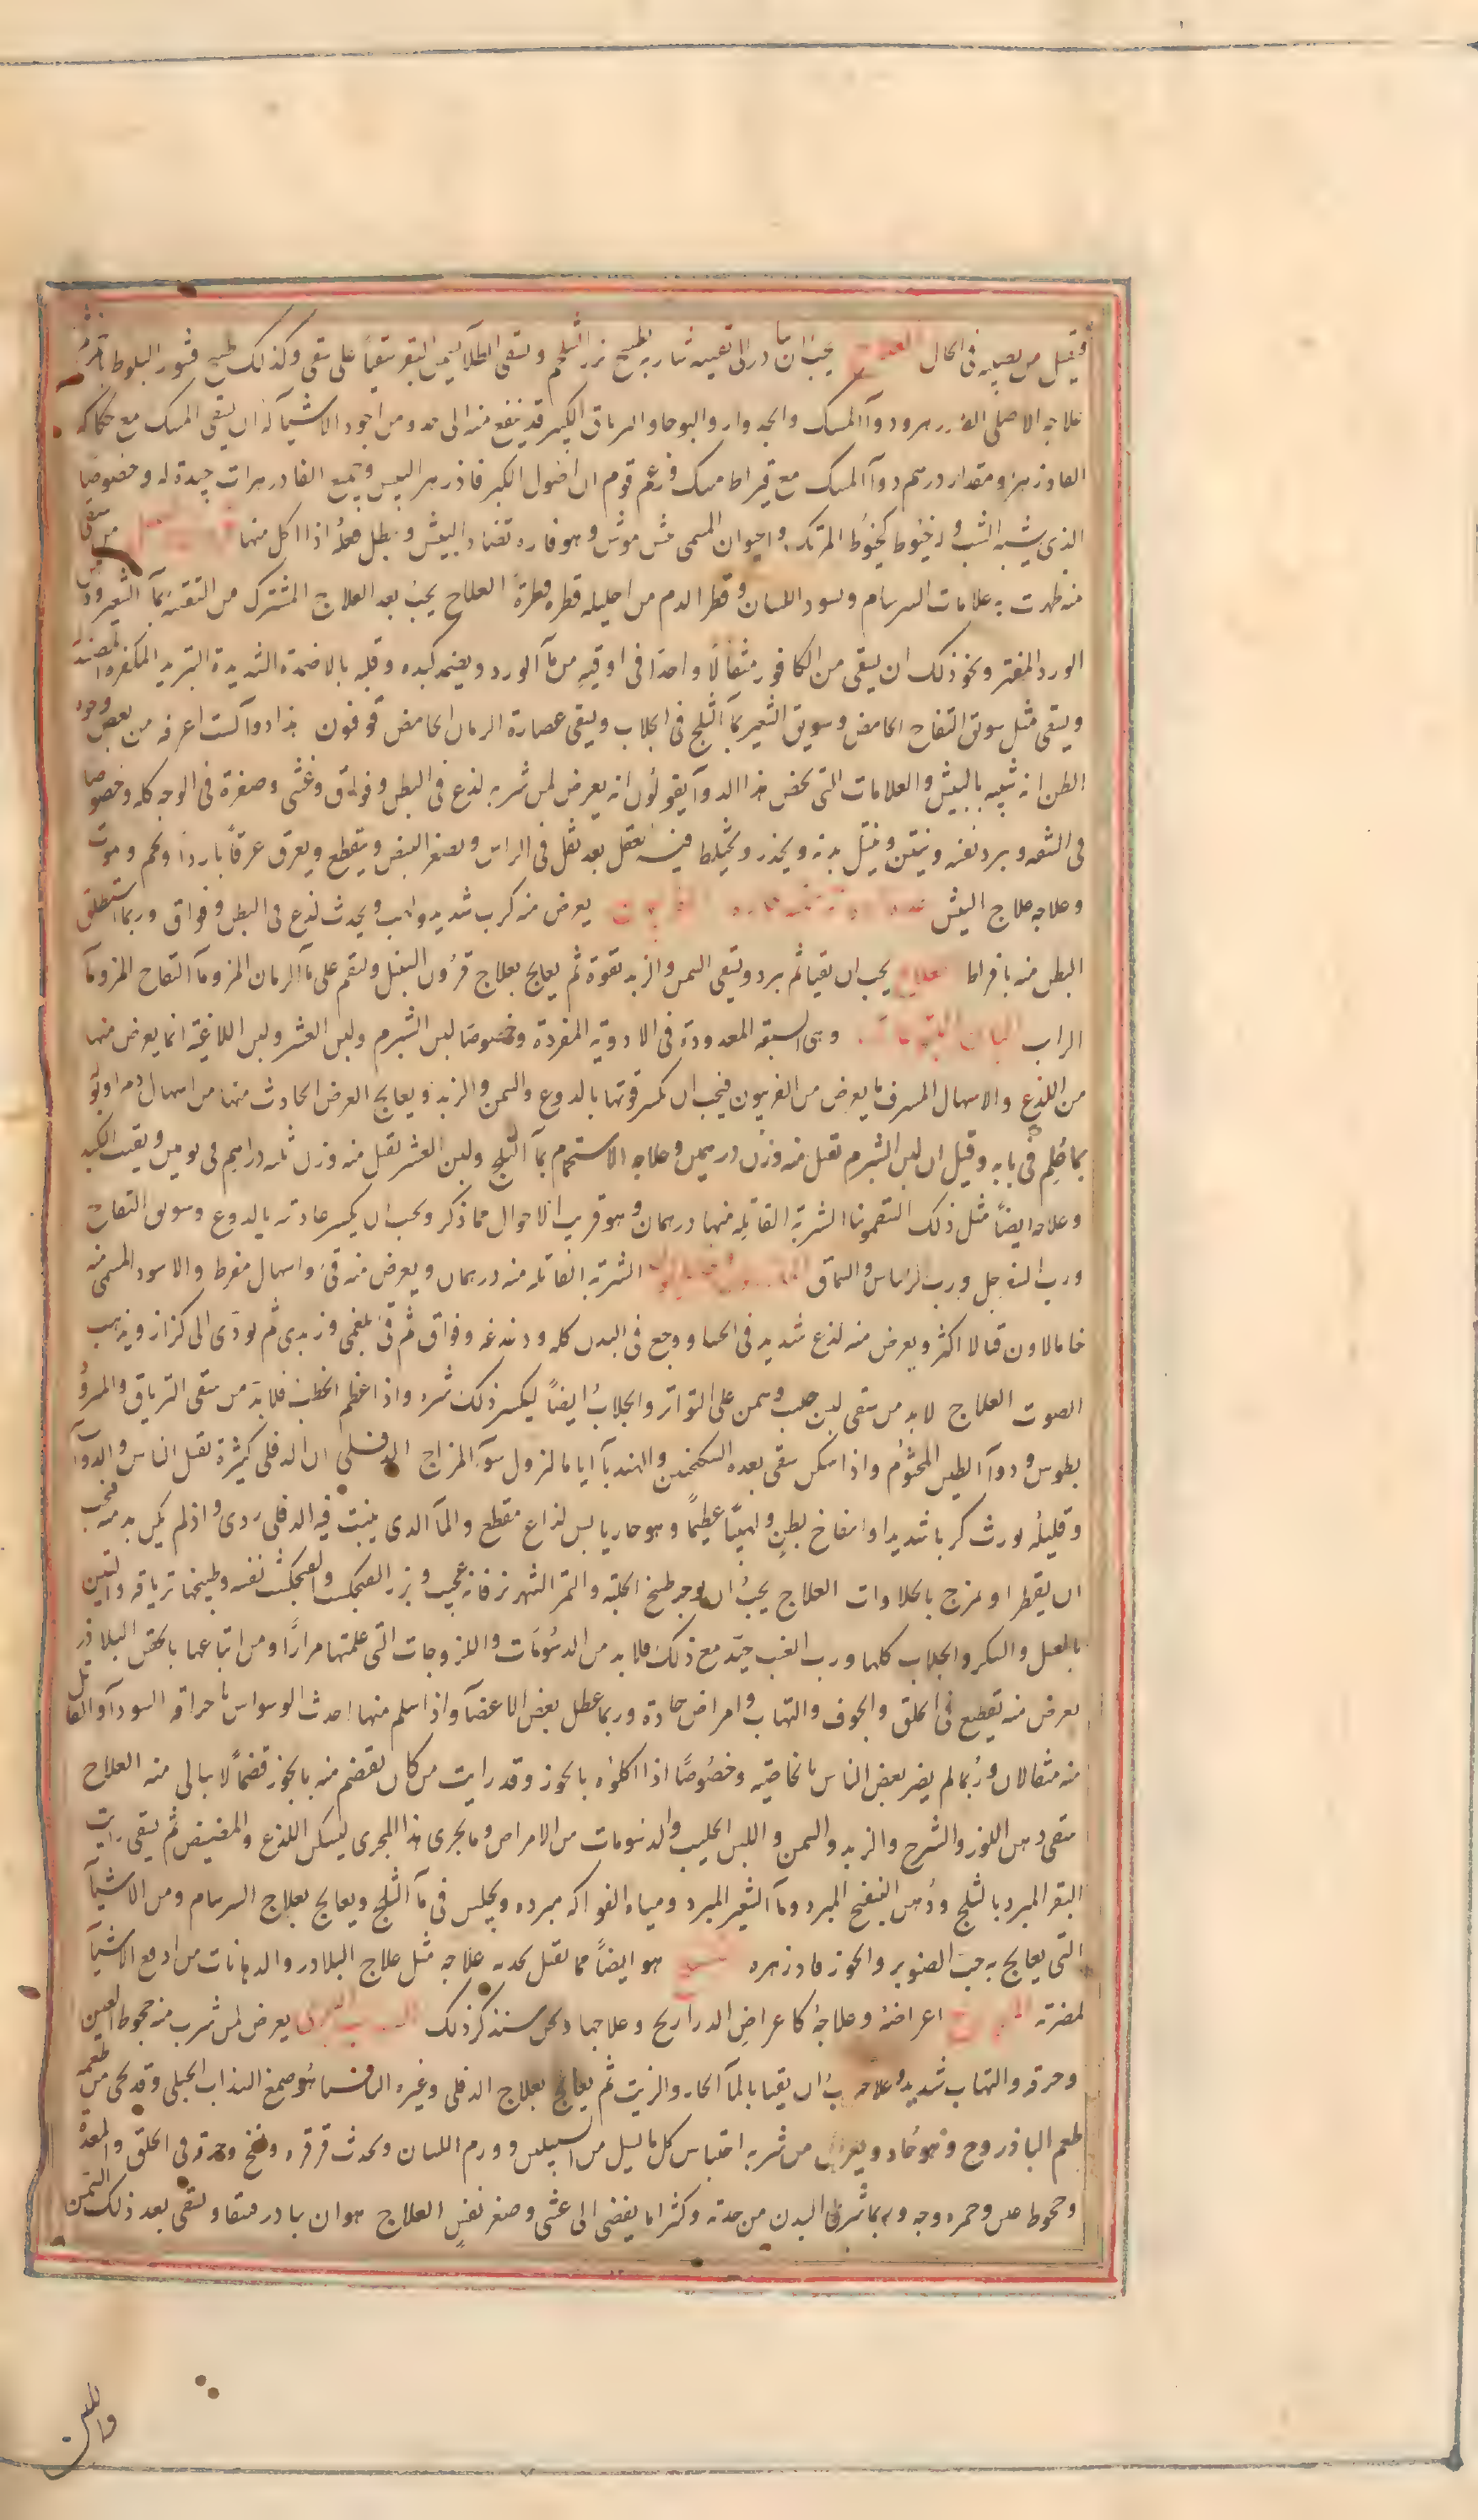 فيقتل من يصيبه في الحال العلاج يجب ان يبادر الى تقيئة شاربه بطبيخ بزر الشلجم ويسقى الطلا بسمن البقر سقيا على سقى وكذلك طبيخ قشور البلوط بالخمر ثم
علاجه الاصلى الفادزهر ودوآ المسك والجدوار والبوحا والترياق الكبير قد ينفع منه الى حد ومن اجود الاشيآ له ان يسقى المسك مع حكاكه
الفادزهر ومقدار درهم دوآ المسك مع قيراط مسك وزعم قوم ان اصول الكبر فادزهر البيش وجميع الفادزهرات جيدة له وخصوصا
الذى يشبه الشب وله خيوط كخيوط المرتك والحيوان المسمى مش موش وهو فاره تضاد البيش ويبطل فعله اذا اكل منها من سقى
منه ظهرت به علامات السرسام وسود اللسان وقطر الدم من احليله قطره قطرة العلاج يجب بعد العلاج المشترك من التقيئة بمآ الشعير ودهن
الورد المفتر ونحو ذلك ان يسقى من الكافور مثقالا واحدا في اوقيه من مآ الورد ويضمد كبده وقلبه بالاضمدة الشديدة التبريد المكفرة المصندلة
ويسقى مثل سويق التفاح الحامض وسويق الشعير بمآ الثلج في الجلاب ويسقى عصارة الرمان الحامض قوفون هذا دوآ لست اعرفه من بعض وجوه
الظن انه شبيه بالبيش والعلامات التى تخص هذا الدوآ يقولون انه يعرض لمن شربه لذع فى البطن وفواق وغشى وصفرة فى الوجه كله وخصوصا
فى الشفه وبرد نفسه وينتن ويثقل بدنه ويخدر ويختلط فيه عقل بعد ثقل فى الراس ويصغر النبض وينقطع ويعرق عرقا باردا ويحم ويموت
وعلاجه علاج البيش يعرض منه كرب شديد ولهب ويحدث لذع فى البطن وفواق وربما استطلق
البطن منه بافراط العلاج يجب ان يقيا ثم يبرد ويسقى السمن والزبد بقوة ثم يعالج بعلاج قرون السنبل ويقم على مآ الرمان المز ومآ التفاح المز ومآ
الراب البان اليتوعات وهى السبعة المعدودة فى الادوية المفردة وخصوصا لبن الشبرم ولبن العشر ولبن اللاغية انما يعرض منها
من اللذع والاسهال المسرف ما يعرض من الفربيون فيجب ان تكسر قوتها بالدوغ والسمن والزبد ويعالج العرض الحادث منها من اسهال دم او بَوْل
بما علم فى بابه وقيل ان لبن الشبرم يقتل منه وزن درهمين وعلاجه الاستحمام بمآ الثلج ولبن العشر يقتل منه وزن ثلثه دراهم فى يومين ويفتت الكبد
وعلاجه ايضا مثل ذلك السقمونيا الشربة القاتلة منها درهمان وهو قريب الاحوال مما ذكر ويجب ان يكسر عاديته بالدوغ وسويق التفاح
ورب السفرجل ورب الريباس والسماق الشربة القاتله منه درهمان ويعرض منه قئ واسهال مفرط والاسود المسمى منه
خامالاون قتالا اكثر ويعرض منه لذع شديد فى الحشا ووجع فى البدن كله ودغدغه وفواق ثم قئ بلغمى وزبدى ثم يؤدى الى كزاز ويذهب
الصوت العلاج لا بد من سقى لبن حليب وسمن على التواتر والجلاب ايضا ليكسر ذلك شره واذا عظم الخطب فلا بد من سقى الترياق والمثرو
بطوس ودوآ الطين المختوم واذا سكن سقى بعده السكنجبين والهندبآ اياما لنزول سوء المزاج الدفلى ان الدفلى كثيره تقتل الناس والدوآب
وقليله يورث كربا شديدا وانتفاخ بطن ولهيبا عظيما وهو حار يابس لذاع مقطع والمآ الذى ينبت فيه الدفلى ردى واذ لم يكن بد منه فيجب
ان يقطر او يمزج بالحلاوات العلاج يجب ان يوجر طبيخ الحلبة والتمر الشهريز فانه عجيب وبزر الفنجنكشت والفنجنكشت نفسه وطبيخها ترياقه والتين
بالعسل والسكر والجلاب كلها ورب العنب جيد مع ذلك فلا بد من الدسومات واللزوجات التى علمتها مرارا ومن اتباعها بالحقن البلاذر
يعرض منه تقطيع فى الحلق والجوف والتهاب وامراض حادة وربما عطل بعض الاعضآ واذا سلم منها احدث الوسواس باحراقه السودآ والقاتل
منه مثقالان وربما لم يضر بعض الناس بالخاصية وخصوصا اذا اكلوه بالجوز وقد رايت من كان يقضم منه بالجوز قضما لا يبالى منه العلاج
سقى دهن اللوز والشيرج والزبد والسمن واللبن الحليب والدسومات من الامراض وما يجرى هذا المجرى ليسكن اللذع والمضيض ثم يسقى رايب
البقر المبرد بالثلج ودهن البنفسج المبرد ومآ الشعير المبرد ومياه الفواكه مبرده ويجلس فى مآ الثلج ويعالج بعلاج السرسام ومن الاشيآ
التى يعالج به حب الصنوبر والجوز فادزهره هو ايضا مما يقتل بحدته علاجه مثل علاج البلاذر والدهانات من ادفع الاشيآ
لمضرته اعراضه وعلاجه كاعراض الذراريح وعلاجها ونحن سنذكر ذلك يعرض لمن شرب منه جحوظ العين
وحرقه والتهاب شديد وعلاجه يجب ان يقيا بالمآ الحار والزيت ثم يعالج بعلاج الدفلى وغيره الثافسيا هو صمغ السذاب الجبلى وقد يحكى من طعمه
طعم الباذروج وهو حاد ويعرض من شربه احتباس كل ما يسيل من السبيلين وورم اللسان ويحدث قرقره ونفخ وحدة فى الحلق والمعدة
وجحوظ عين وحمره وجه وربما شرى البدن من حدته وكثيرا ما يفضى الى غشى وصغر نفس العلاج هو ان يبادر فيتقيا ويسقى بعد ذلك السمن
واللبن